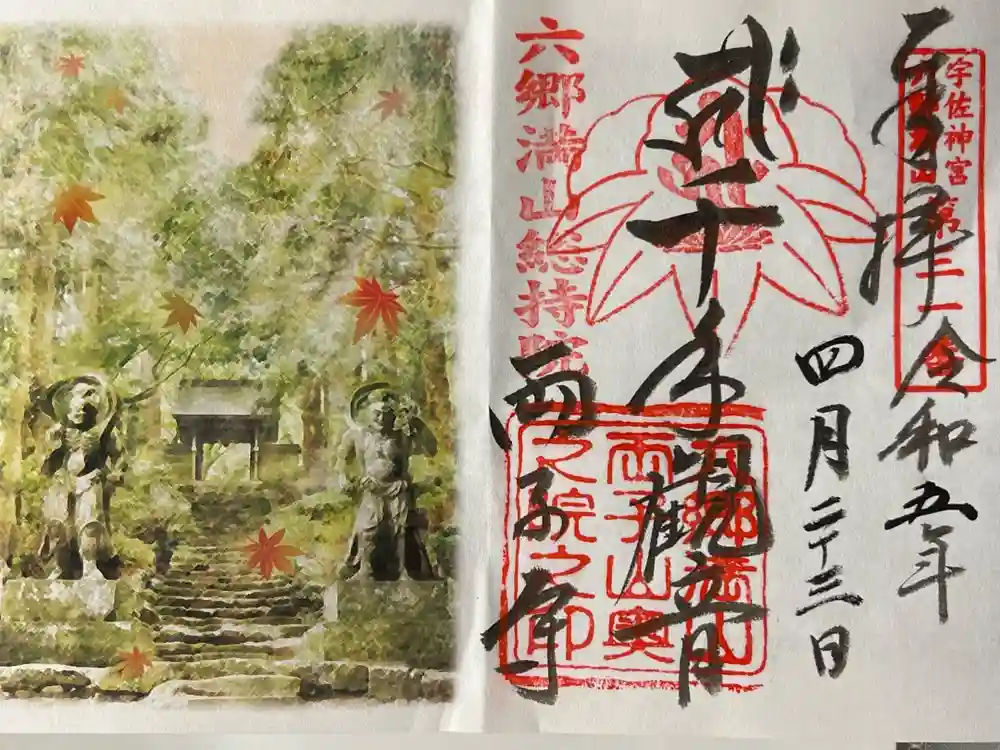 奉拝 令和五年
四月二十三日
宇佐神宮
千手観音
両子寺
六郷満山総持院
六郷満山
両子山奥
之院之印